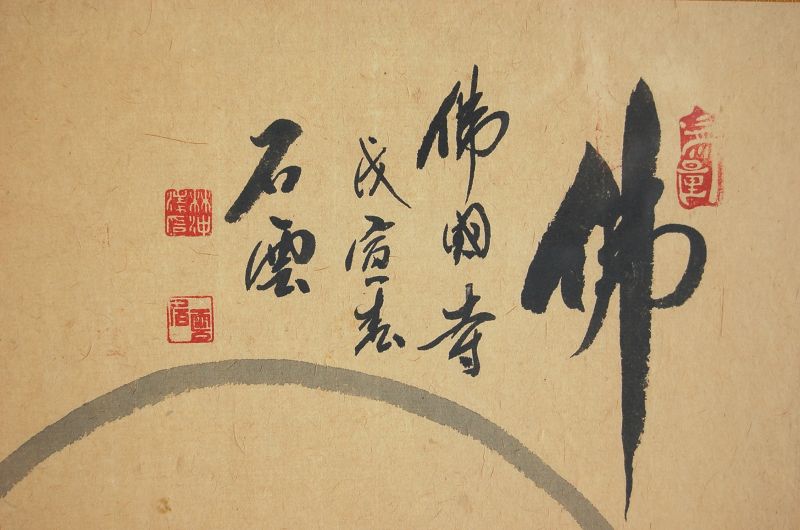 佛
佛國寺
戊寅春
石雲